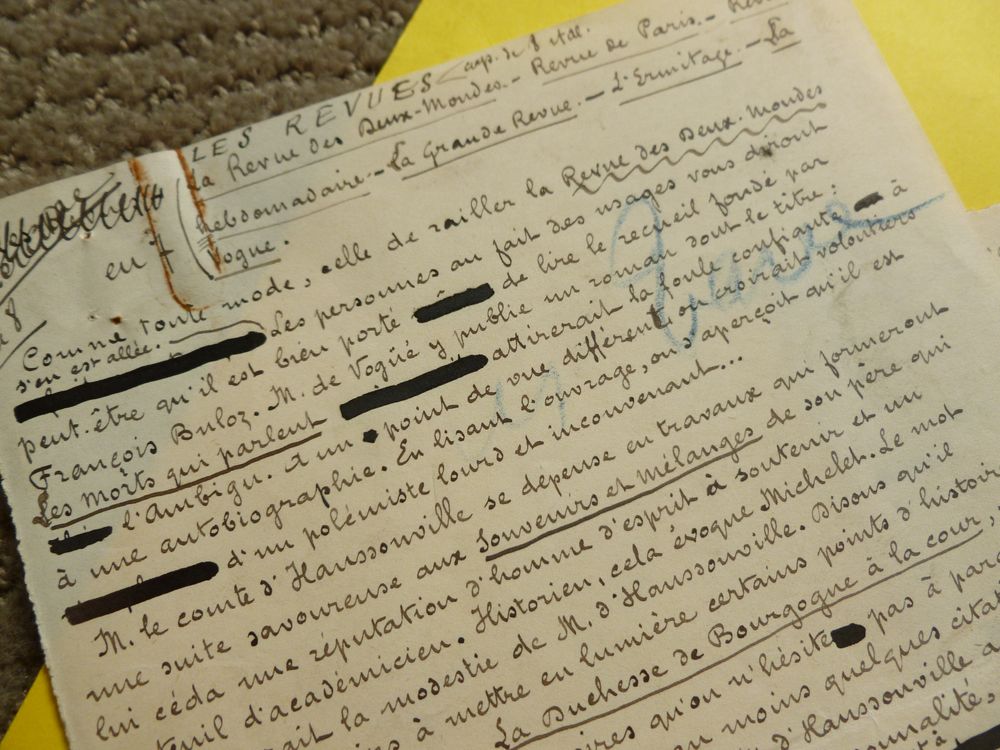 LES REVUES
La Revue des Deux-Mondes. - Revue de Paris. -
hebdomadaire. - La Grande Revue. - L'Ermitage. - La
Vogue.
en 7
8
Comme toute mode, celle de railler la Revue des Deux. Mondes
s'en est allée. Les personnes au fait des usages vous diront
peut-être qu'il est bien porté de lire le recueil fondé par
François Buloz. M. de Vogüé y publie un roman dont le titre:
Les morts qui parlent attirerait la foule confiante à
l'Ambigu. A un point de vue différent on croirait volontiers
à une autobiographie. En lisant l'ouvrage, on s'aperçoit qu'il est
d'un polémiste lourd et inconvenant...
M. le comte d'Haussonville se dépense en travaux qui formeront
une suite savoureuse aux Souvenirs et Mélanges de son père qui
lui céda une réputation d'homme d'esprit à soutenir et un
teuil d'académicien. Historien, cela évoque Michelet. Le mot
rait la modestie de M. d'Haussonville. Disons qu'il
à mettre en lumière certains points d'histoir
La Duchesse de Bourgogne à la cour,
ires qu'on n'hésite pas à par
moins quelques citat
d'Haussonville à
nnalité,